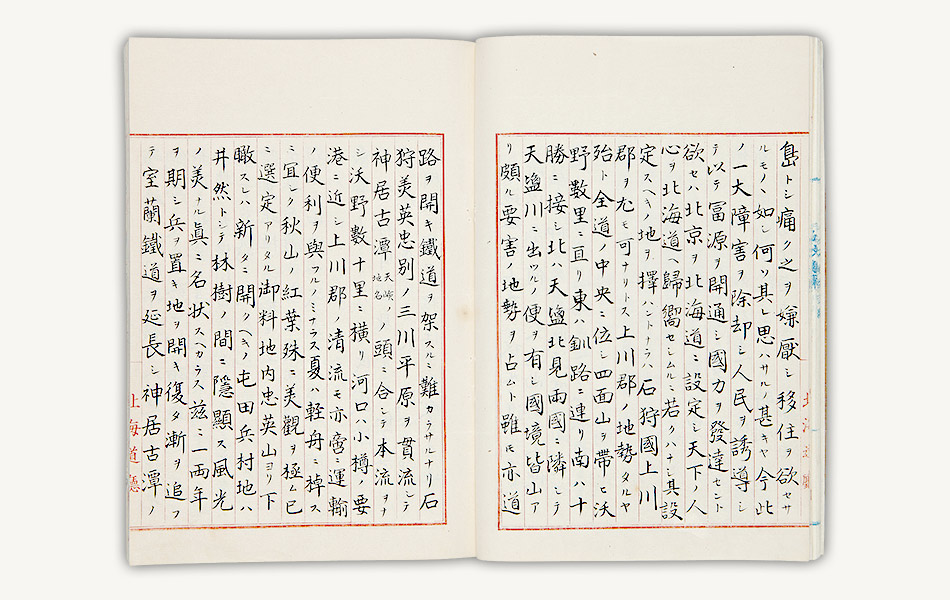 島トシ痛ク之ヲ嫌厭シ移住ヲ欲セサ
ルモノヽ如シ何ソ其レ思ハサルノ甚キヤ今此
ノ一大障害ヲ除却シ人民ヲ誘導シ
テ以テ冨源ヲ開通シ國力ヲ發達セント
欲セハ北京ヲ北海道ニ設定シ天下ノ人
心ヲ北海道ヘ歸嚮セシムルニ若クハナシ其設
定スヘキノ地ヲ擇ハントナラハ石狩國上川
郡ヲ尤モ可ナリトス上川郡ノ地勢タルヤ
殆ト全道ノ中央ニ位シ四面山ヲ帶ヒ沃
野數里ニ亘リ東ハ釧路ニ連リ南ハ十
勝ニ接シ北ハ天盬北見両國ニ隣シテ
天盬川ニ出ツルノ便ヲ有シ國境皆山ア
リ頗ル要害ノ地勢ヲ占ムト雖𪜈亦道
路ヲ開キ鐵道ヲ架スルニ難カラサルナリ石
狩美英忠別ノ三川平原ヲ貫流シテ
神居古潭天嶮ノ地名ノ頭ニ合シテ本流ヲナ
シ沃野數十里ニ横リ河口ハ小樽ノ要
港ニ近シ上川郡ノ清流モ亦啻ニ運輸
ノ便利ヲ與フルノミナラス夏ハ軽舟ニ棹ス
ニ冝シク秋山ノ紅葉殊ニ美觀ヲ極ム已
ニ選定アリタル御料地内忠英山ヨリ下
瞰スレハ新タニ開クヘキノ屯田兵村地ハ
井然トシテ林樹ノ間ニ隱顯ス風光
ノ美ナル眞ニ名状スヘカラス茲ニ一両年
ヲ期シ兵ヲ置キ地ヲ開キ復タ漸ヲ追フ
テ室蘭鐵道ヲ延長シ神居古潭ノ
北海道廳